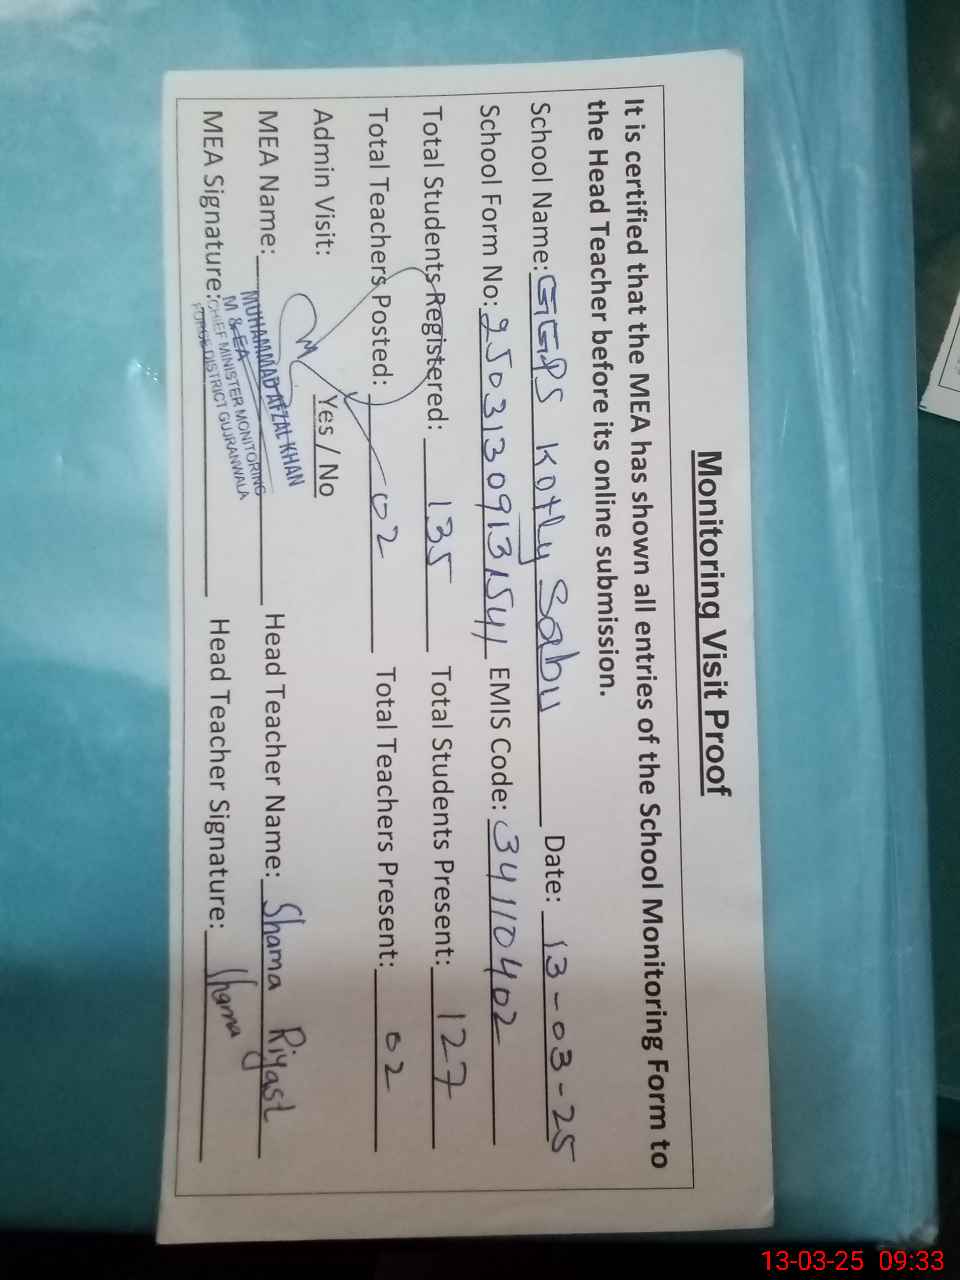 Monitoring Visit Proof
It is certified that the MEA has shown all entries of the School Monitoring Form to
the Head Teacher before its online submission.
School Name: GGPS Kotly Sabu Date: 13-03-25
School Form No: 25031309131541 EMIS Code: 34110402
Total Students Registered: 135 Total Students Present: 127
Total Teachers Posted: 02 Total Teachers Present: 02
Admin Visit: Yes / No
MEA Name: Head Teacher Name: Shama Riyast
MUHAMMAD AFZAL KHAN
M & EA
CHIEF MINISTER MONITORING
FORCE DISTRICT GUJRANWALA
MEA Signature: Head Teacher Signature: Shama
13-03-25 09:33